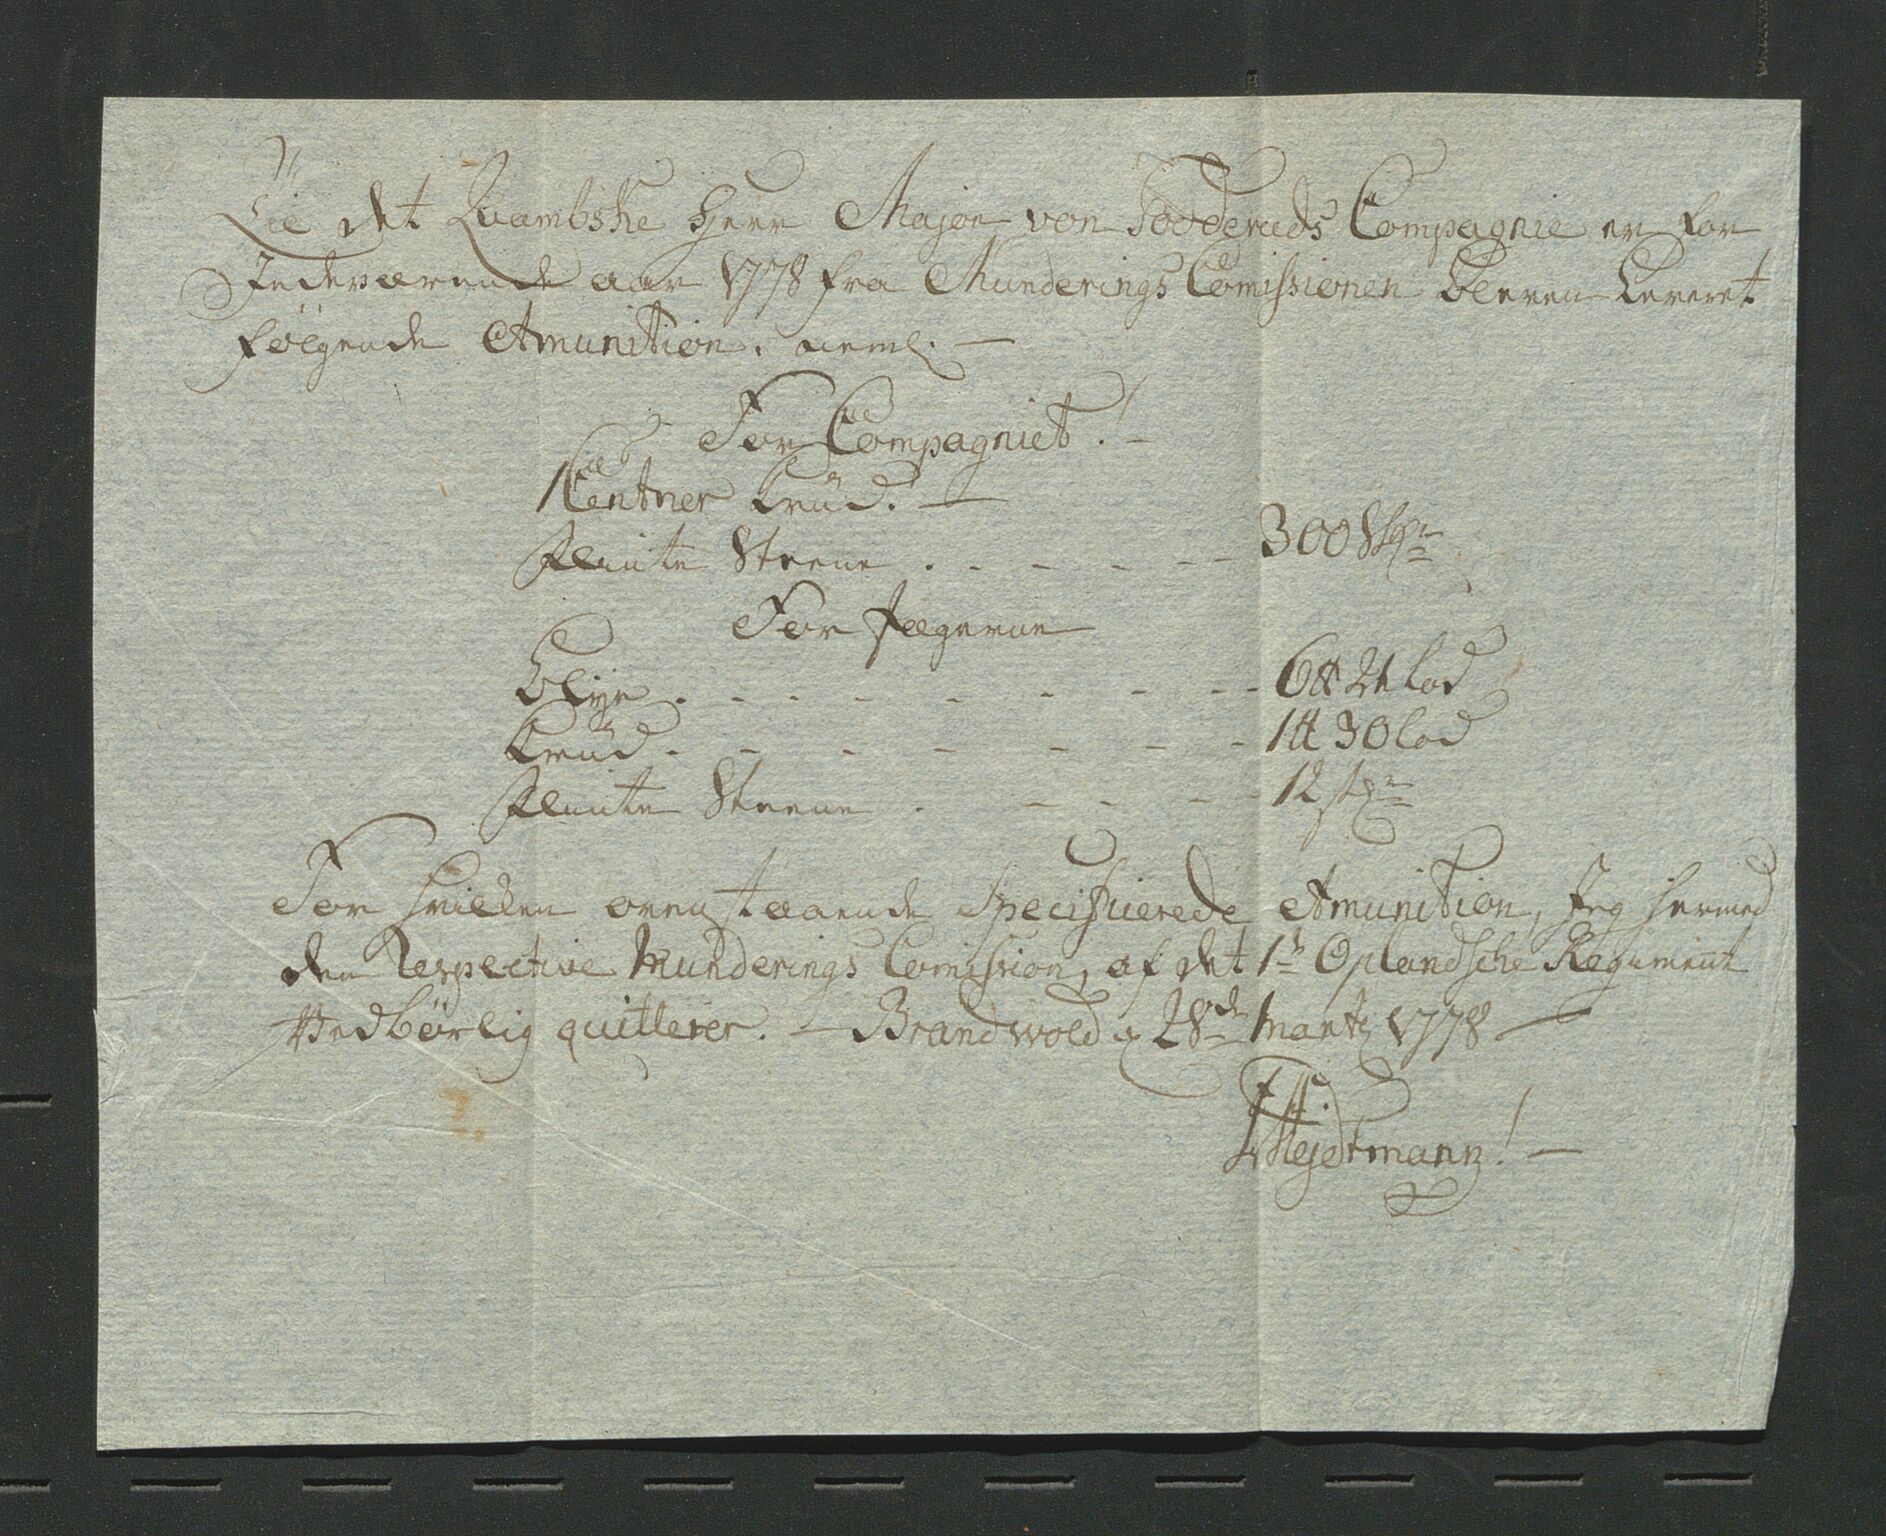 Til det Quambske Herr Major von Todderuds Compagnie er for
Indeværende aar 1778 fra Munderings Comissionen bleven Leveret
følgende Amunition. neml. —
For Compagniet. —
1 Centner Krud. —
Flinte Steene . - - - - - 300 Stkr
For Jægerne
Blye . - - - - - - - - 6 ℔ 21 Lod
Krud . - - - - - - 1 ℔ 30 Lod
Flinte Steene . - - - - 12 stkr
For hvilken ovenstaaende Specificerede Amunition, Jeg hermed
den Respective Munderings Comission, af det 1te Oplandsche Regiment
Vedbørlig quitterer. — Brandwold d 28de Martz 1778 —
Hejdtmann! —